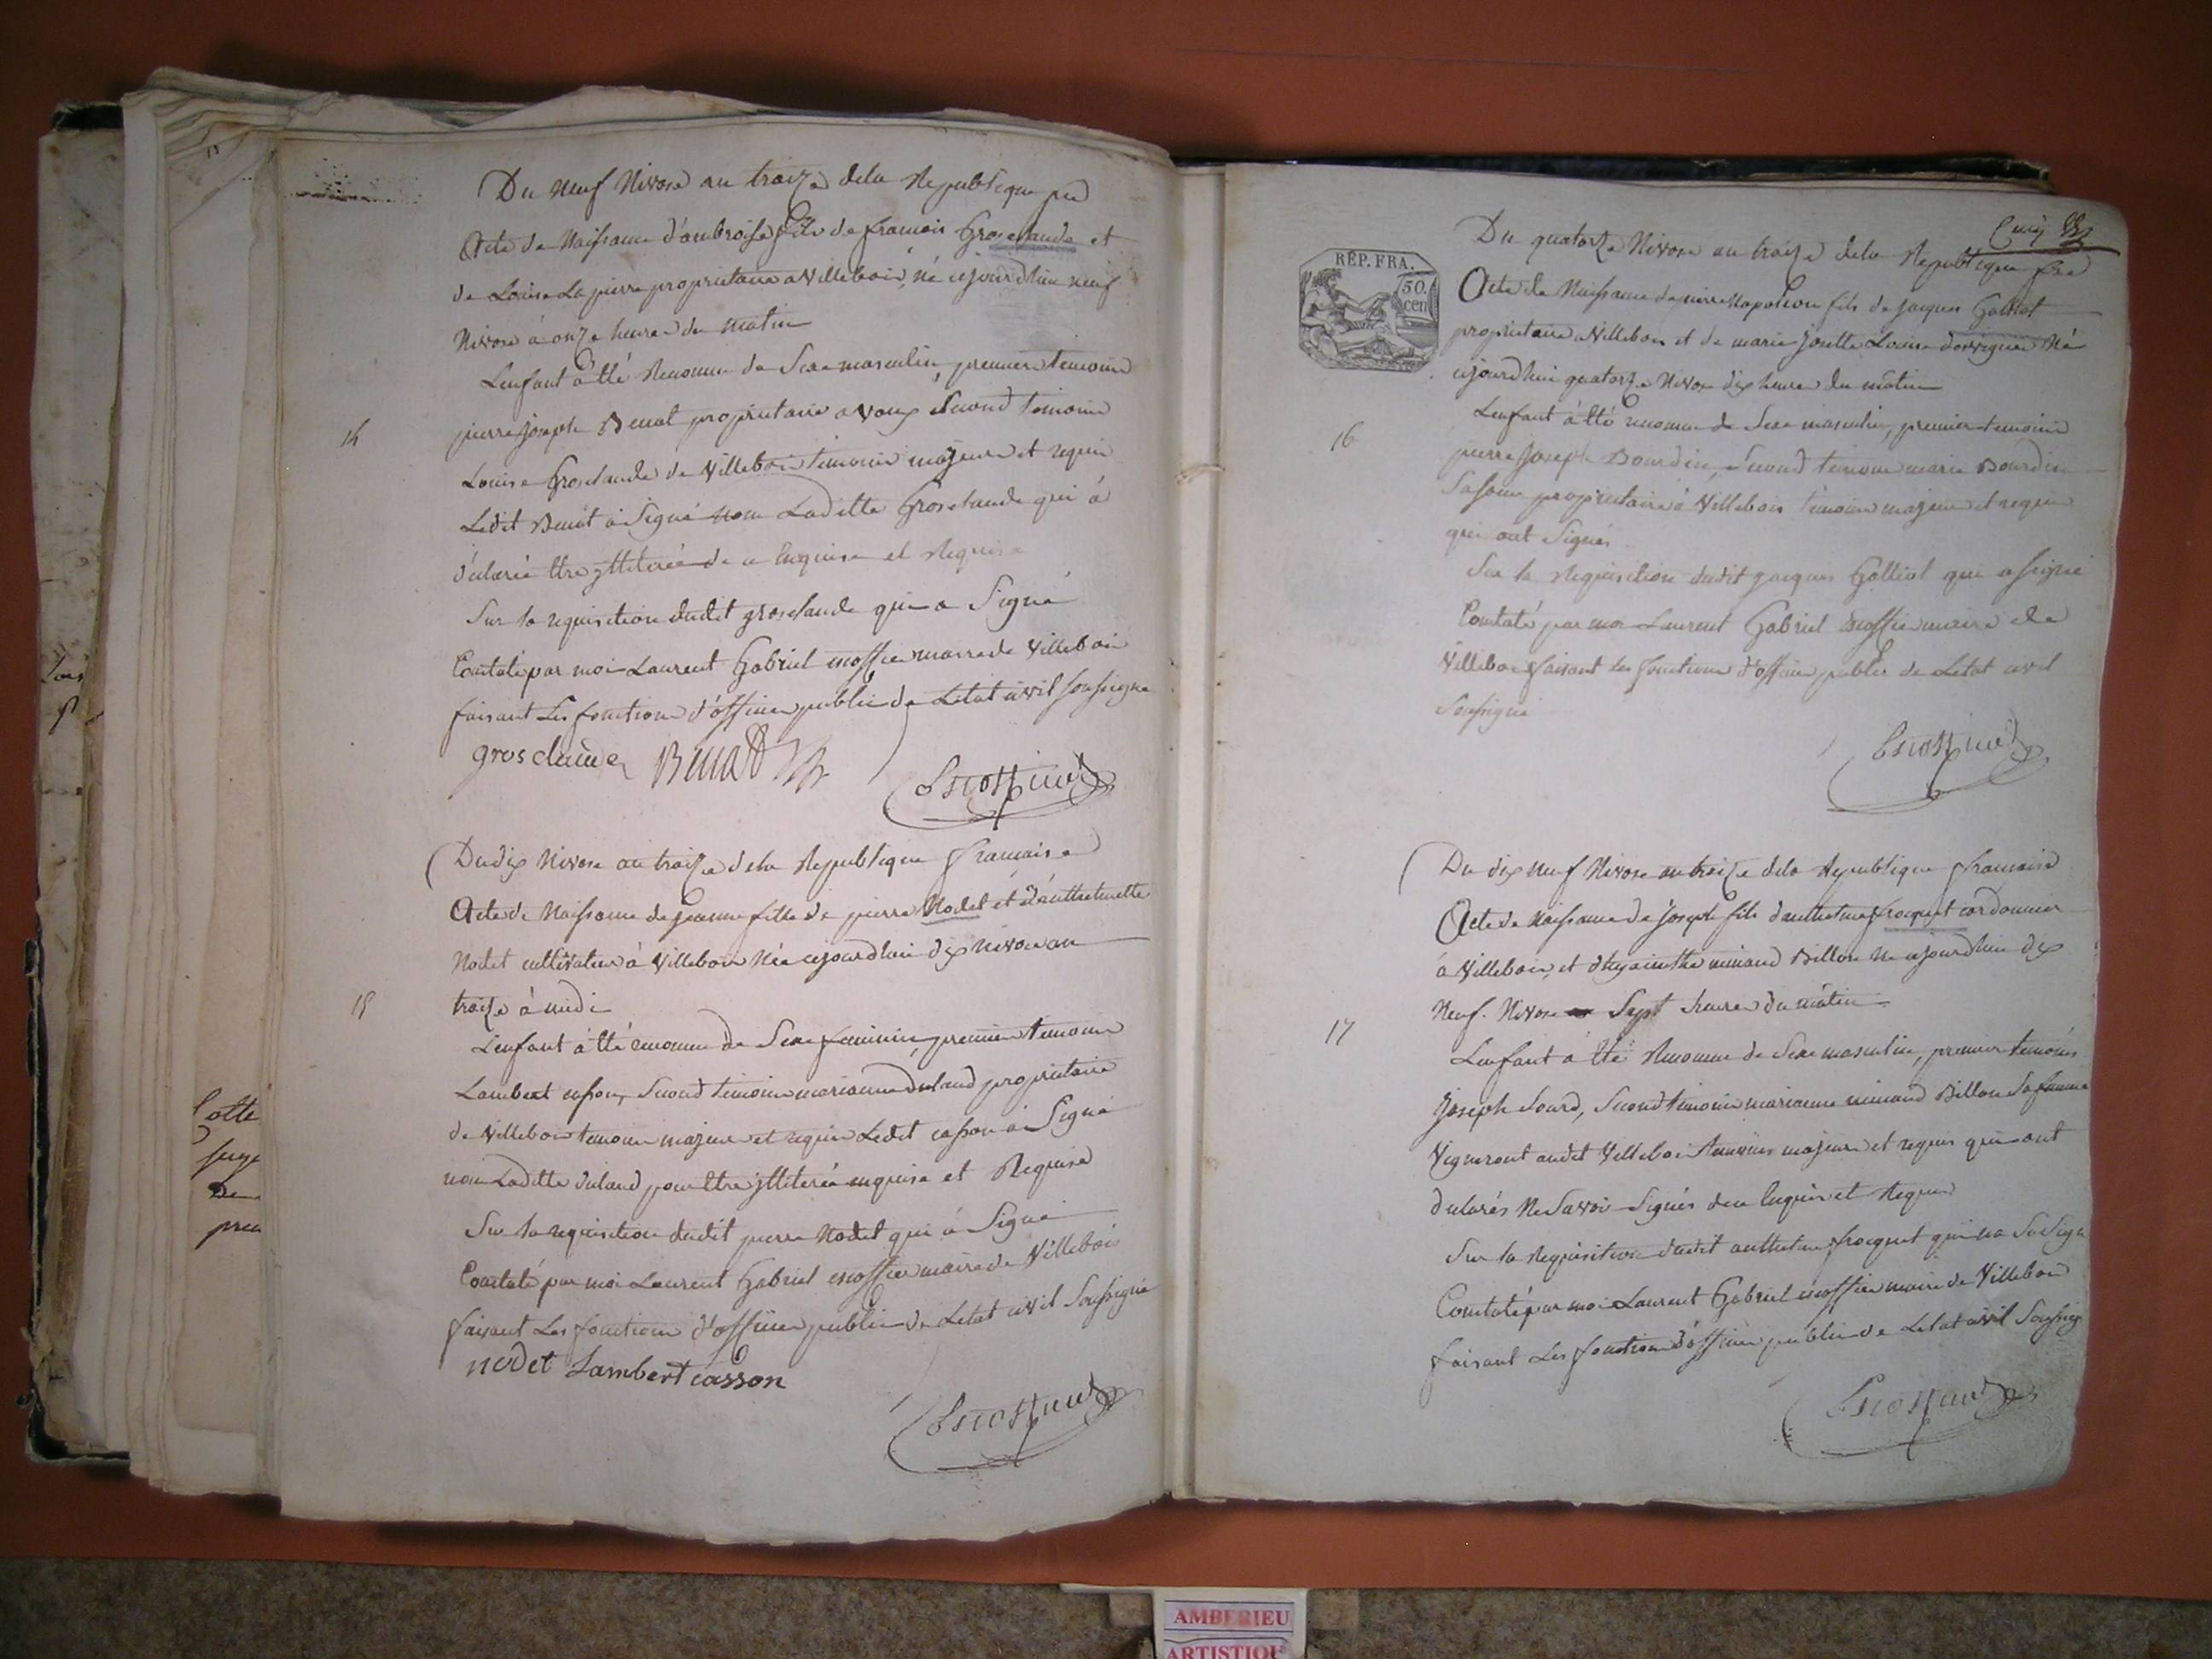 Du neuf Nivose an treize dela Republique fse
Acte de Naissance d'ambroise fils de francois Grosclaude et
de Louise Lapierre proprietaire a Villebois, né cejourdhui neuf
Nivose à onze heures du matin
Lenfant à été Reconnu de Sexe masculin, premier temoin
14
pierre joseph Benat proprietaire a Vaux Second temoin
Louise Grosclaude de Villebois temoins majeurs et requis
Ledit Benat à Signé non Laditte Grosclaude qui à
déclaré être jlliterée de ce Enquise et Requise
Sur la requisition dudit grosclaude qui a Signé
Constaté par moi Laurent Gabriel escoffier maire de Villebois
faisant Les fonctions d'officier public de Letat civil soussigné
grosclaude Benat
Escoffier
Du dix Nivose an treize dela Republique francaise
Acte de Naissance de jeanne fille de pierre Nodet et d'anthelmette
Nodet cultivateur à Villebois Née cejourdhui dix nivose an
15
treize à midi
Lenfant à été reconnu de Sexe feminin, premier temoin
Lambert casson, Second temoin marianne duland proprietaire
de Villebois temoins majeurs et requis Ledit casson à Signé
non Laditte duland pour être jlliterée enquise et Requise
Sur la requisition dudit pierre Nodet qui à Signé
Constaté par moi Laurent Gabriel escoffier maire de Villebois
faisant Les fonctions d'officier public de Letat civil Soussigné
nodet Lambert casson
Escoffier
Lotte
De
REP. FRA.
50. cen
Du quatorze Nivose an treize dela Republique fse
Acte de Naissance de pierre Napoleon fils de jacques Galliot
proprietaire a Villebois et de marie josette Louise Né
cejourdhui quatorze Nivose dix heures du matin
Lenfant à été reconnu de Sexe masculin, premier temoin
16
pierre joseph Bourdin, Second temoin marie Bourdin
Sa soeur proprietaire à Villebois temoins majeurs et requis
qui ont Signés
Sur la Requisition dudit jacques Galliot qui a signé
Constaté par moi Laurent Gabriel Escoffier maire de
Villebois faisant les fonctions d'officier public de Letat civil
Soussigné
Escoffier
Du dix neuf Nivose an treize dela Republique francaise
Acte de Naissance de joseph fils d'anthelme froquet cordonnier
à Villebois, et d'hyacinthe minand Billon né cejourdhui dix
Neuf Nivose Sept heures du matin
17
Lenfant à été Reconnu de Sexe masculin, premier temoin
joseph Sourd, Second temoin marianne minand Billon Sa femme
Vigneront audit Villebois temoins majeurs et requis qui ont
declarés Ne Savoir Signés de ce Enquis et Requis
Sur la Requisition dudit anthelme froquet qui na Sû Signé
Constaté par moi Laurent Gabriel escoffier maire de Villebois
faisant Les fonctions d'officier public de Letat civil Soussig
Escoffier
AMBERIEU
ARTISTIQU